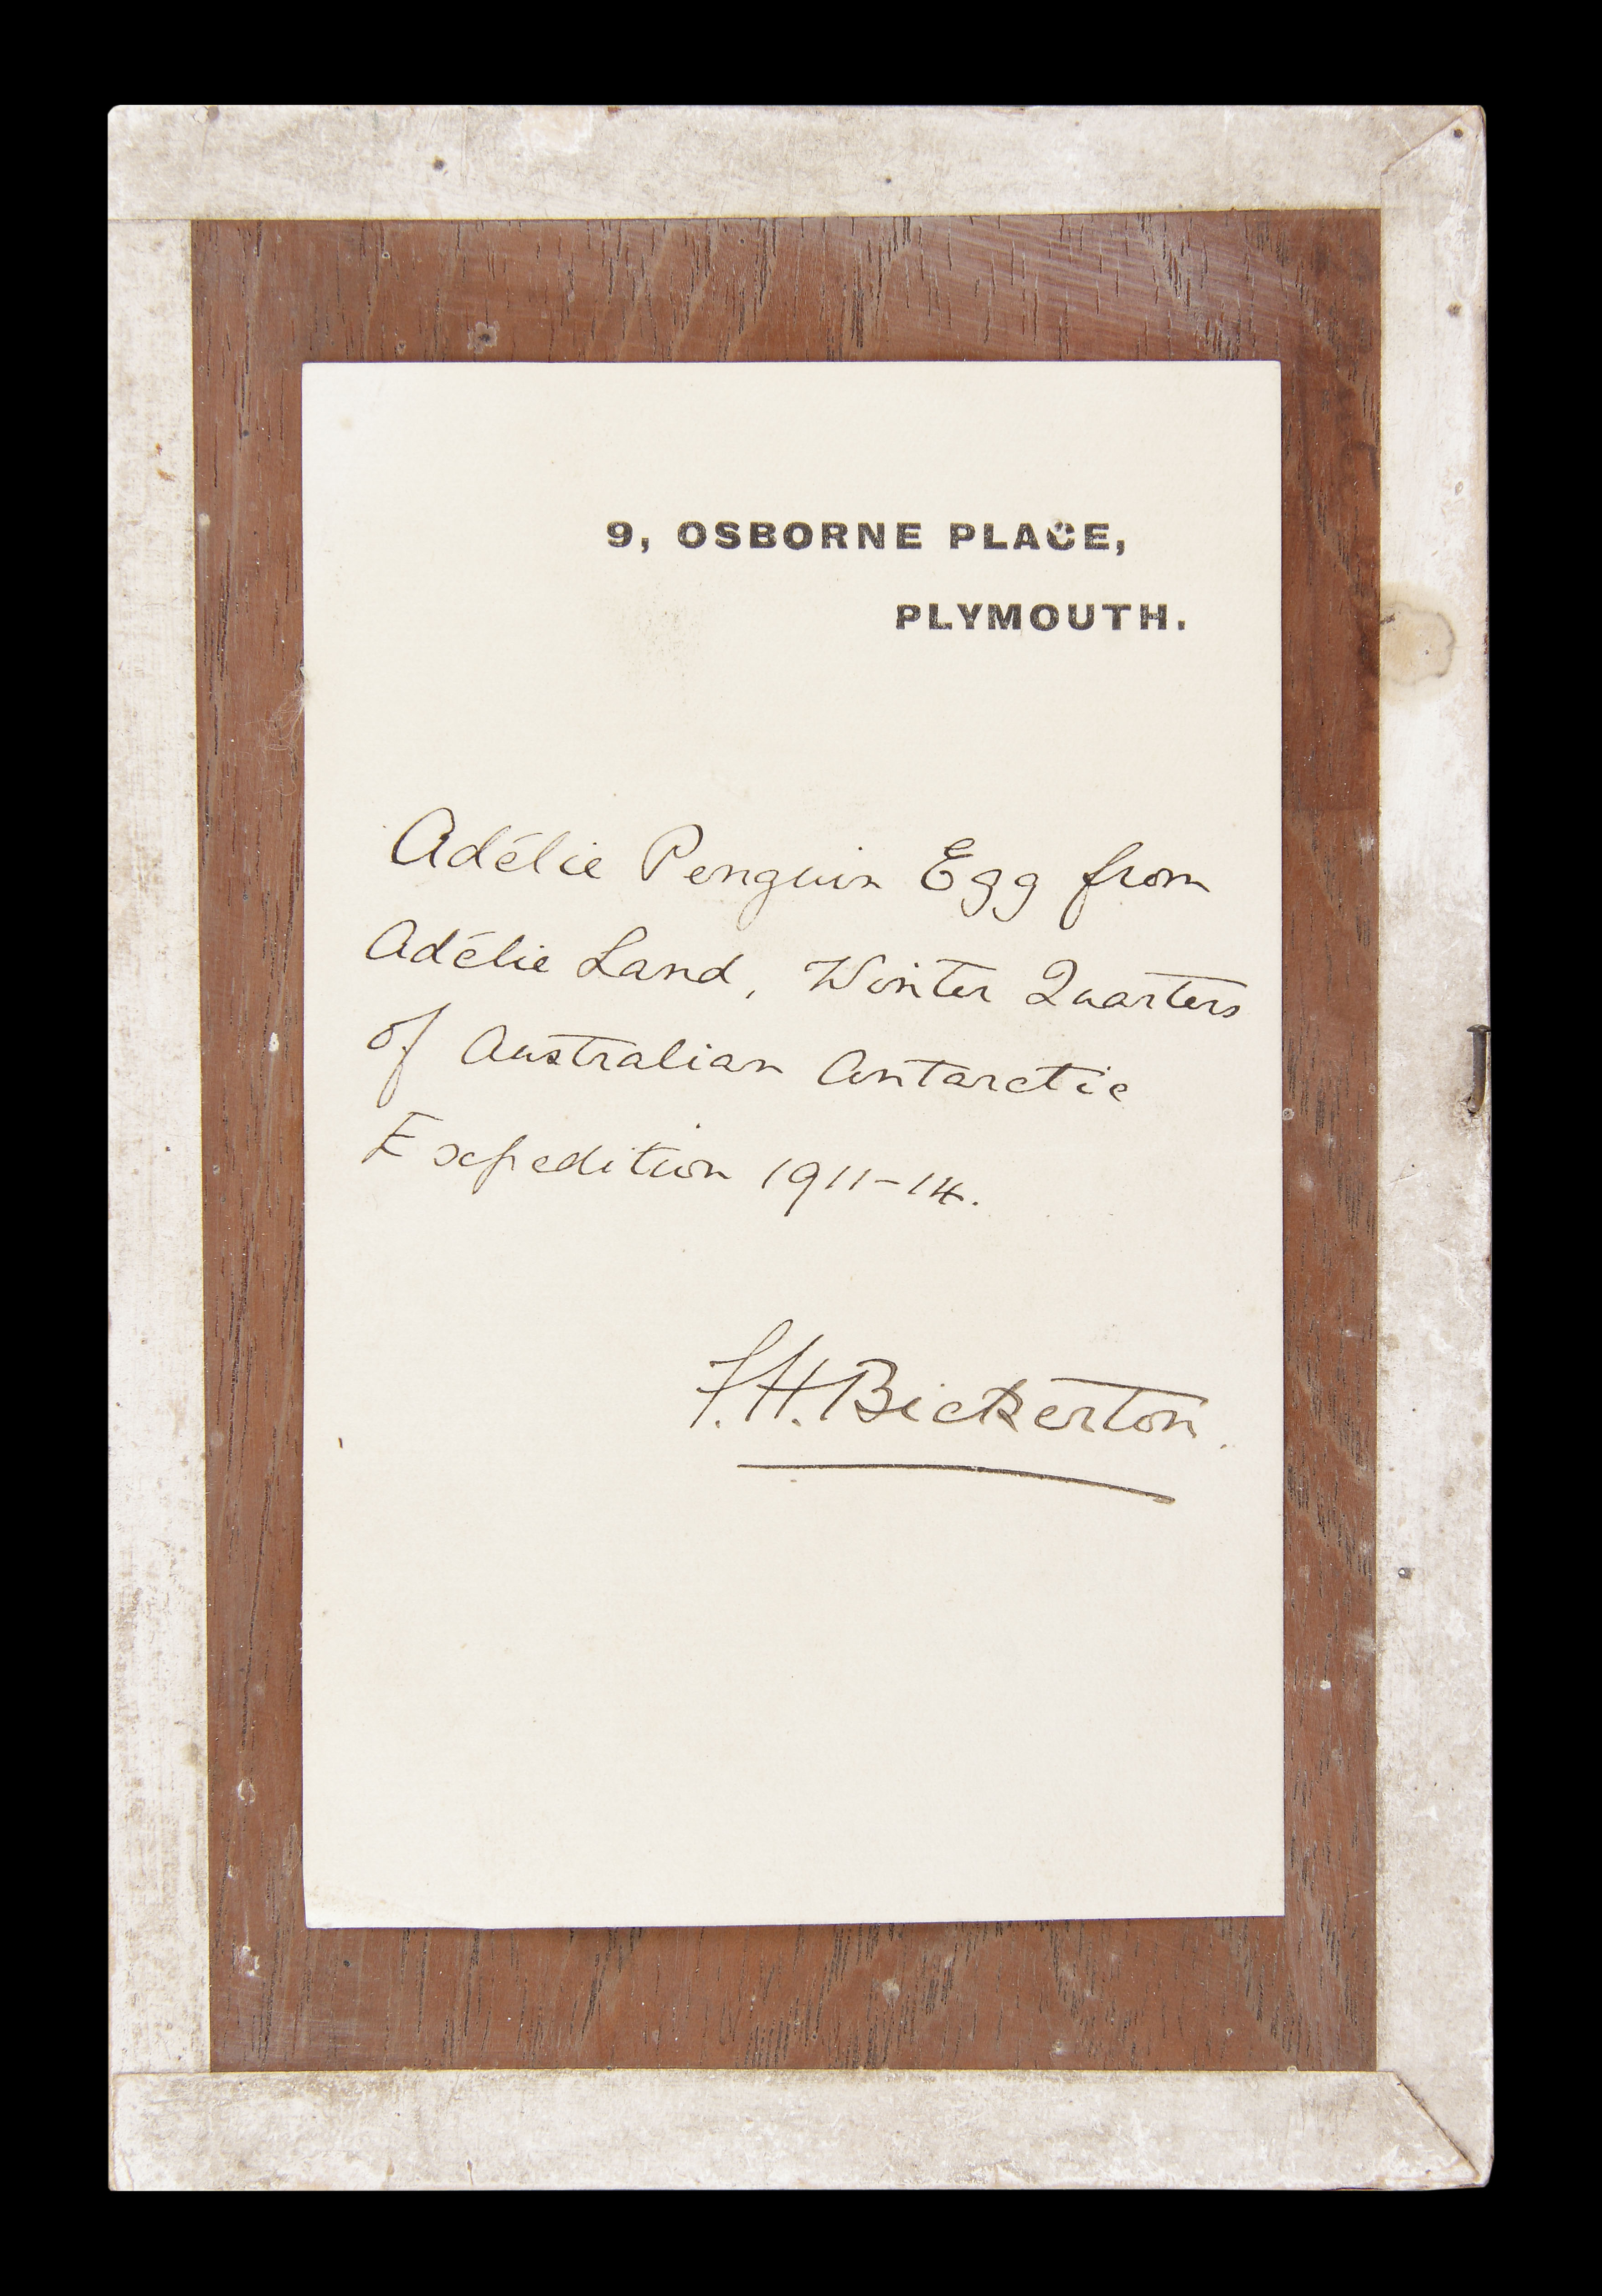 9, OSBORNE PLACE,
PLYMOUTH.
Adélie Penguin Egg from
Adélie Land, Winter Quarters
of Australian Antarctic
Expedition 1911-14.
F.H. Bickerton.